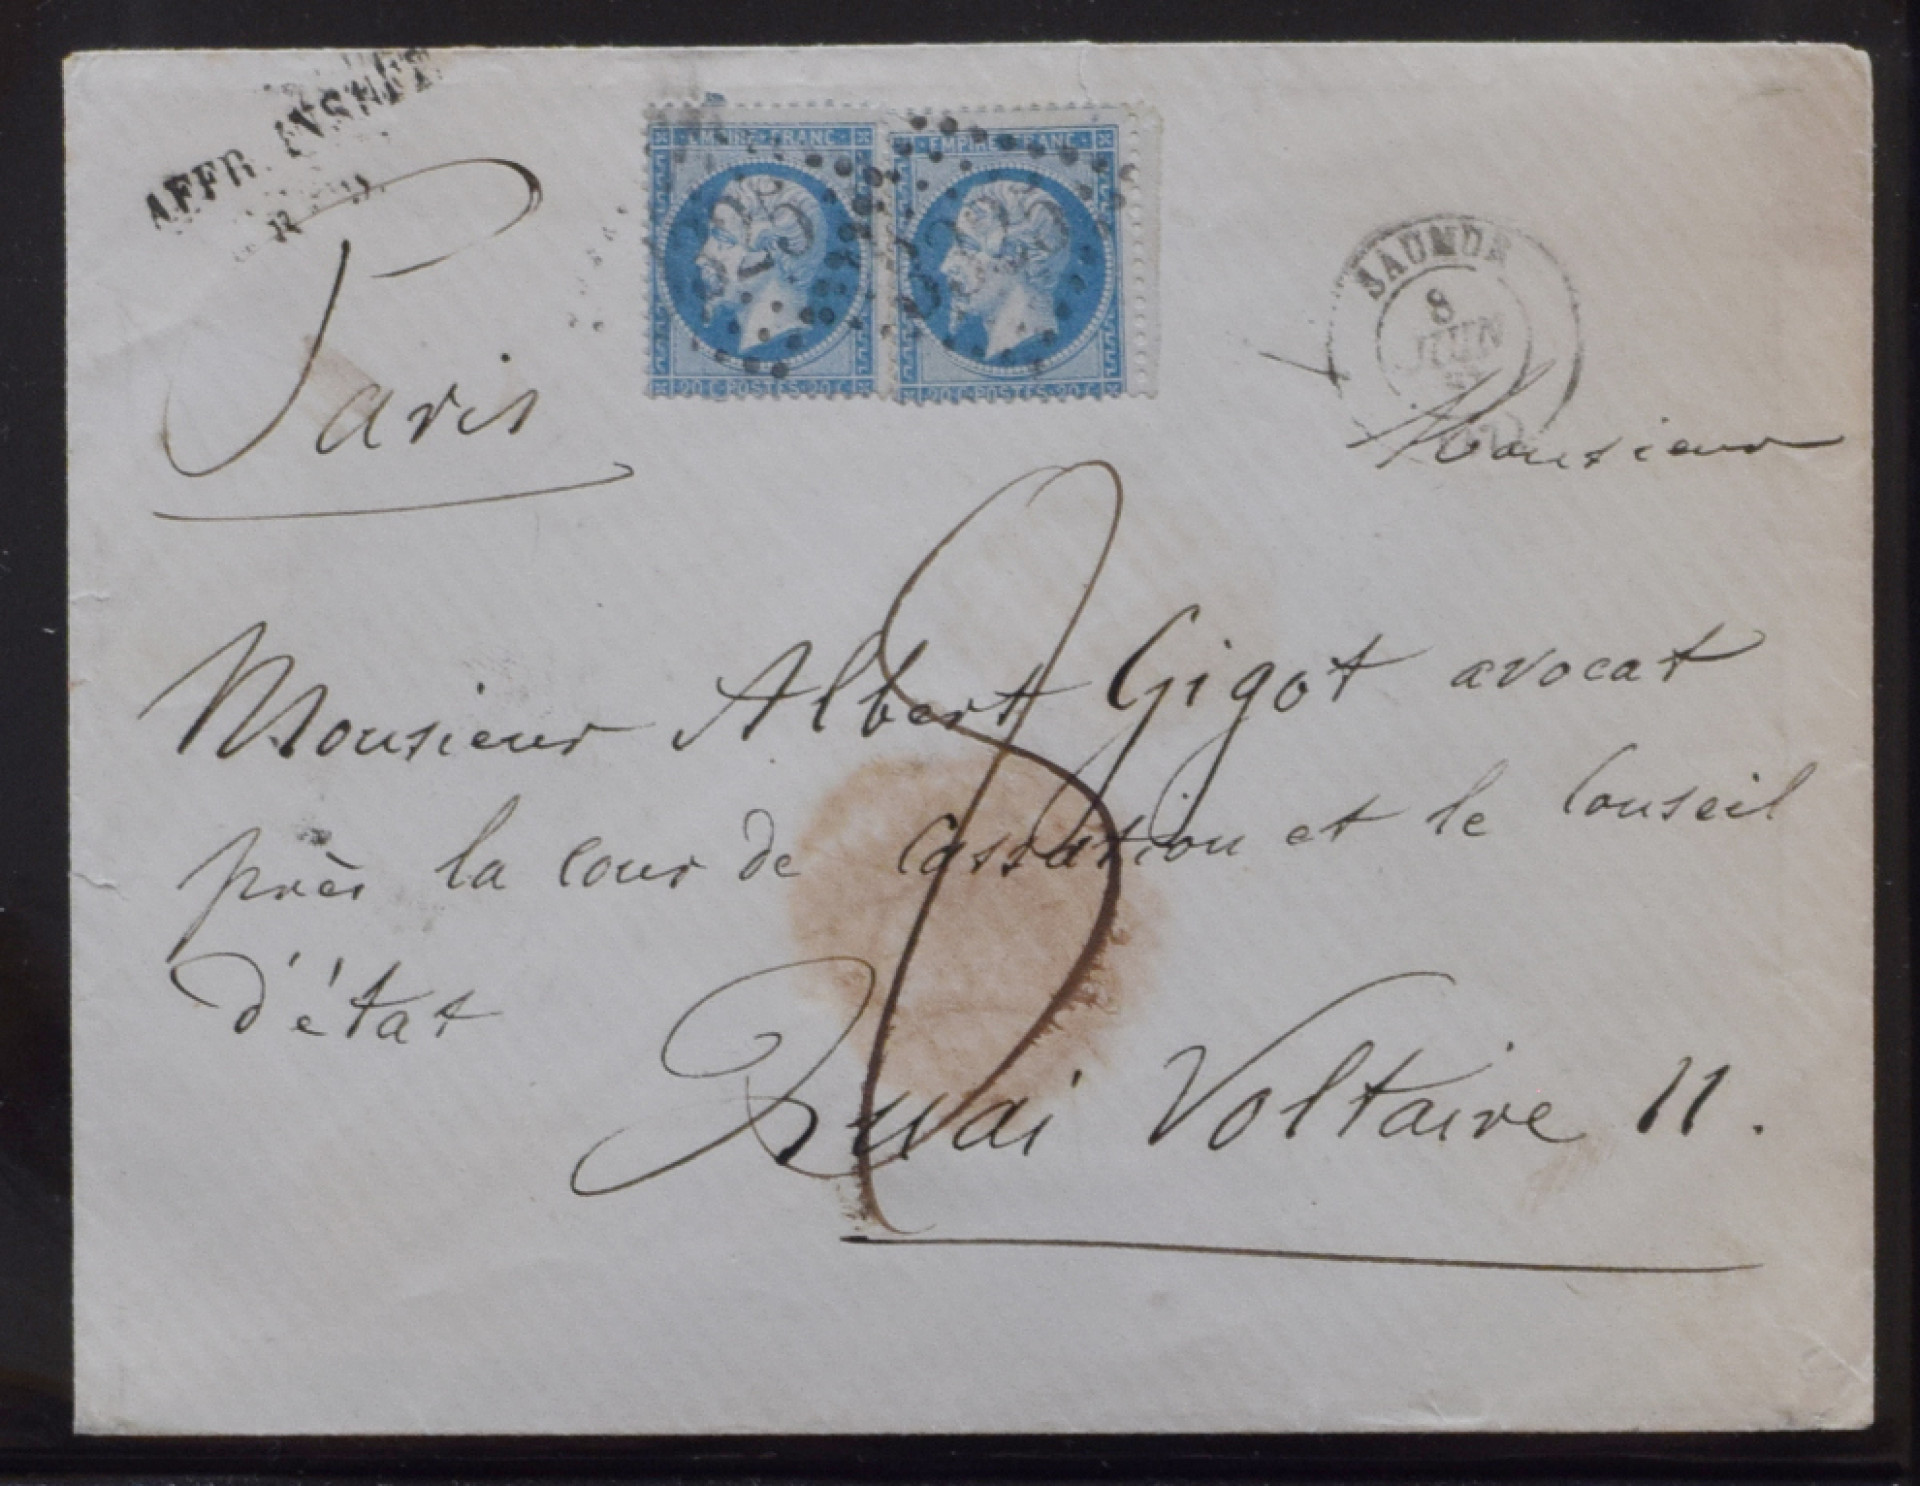 AFFR. INSUFF.
EMPIRE·FRANC·
EMPIRE·FRANC·
20 C·POSTES·20 C
20 C·POSTES·20 C
SAUMUR
8
JUIN
Paris
Monsieur
8
Monsieur Albert Gigot avocat
près la cour de Cassation et le Conseil
d'état
Quai Voltaire 11.